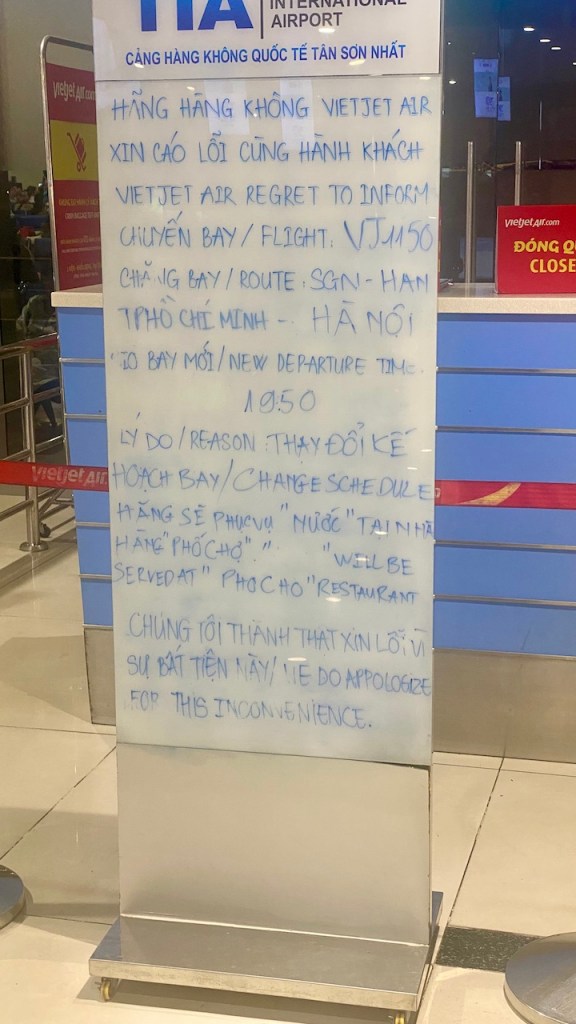 TIA INTERNATIONAL
AIRPORT
CẢNG HÀNG KHÔNG QUỐC TẾ TÂN SƠN NHẤT
HÃNG HÀNG KHÔNG VIETJET AIR
XIN CÁO LỖI CÙNG HÀNH KHÁCH
VIETJET AIR REGRET TO INFORM
CHUYẾN BAY / FLIGHT: VJ1150
CHẶNG BAY / ROUTE: SGN - HAN
TPHỒ CHÍ MINH - HÀ NỘI
BAY MỚI / NEW DEPARTURE TIME
1950
LÝ DO / REASON: THAY ĐỔI KẾ
HOẠCH BAY / CHANGE SCHEDULE
HÃNG SẼ PHỤC VỤ "NƯỚC" TẠI NHÀ
HÀNG "PHỐ CHỢ". " "WILL BE
SERVED AT " PHO CHO "RESTAURANT
CHÚNG TÔI THÀNH THẬT XIN LỖI VÌ
SỰ BẤT TIỆN NÀY / WE DO APPOLOGIZE
FOR THIS INCONVENIENCE.
vietjetAir.com
vietjetAir.com
ĐÓNG
CLOSE
vietjetAir